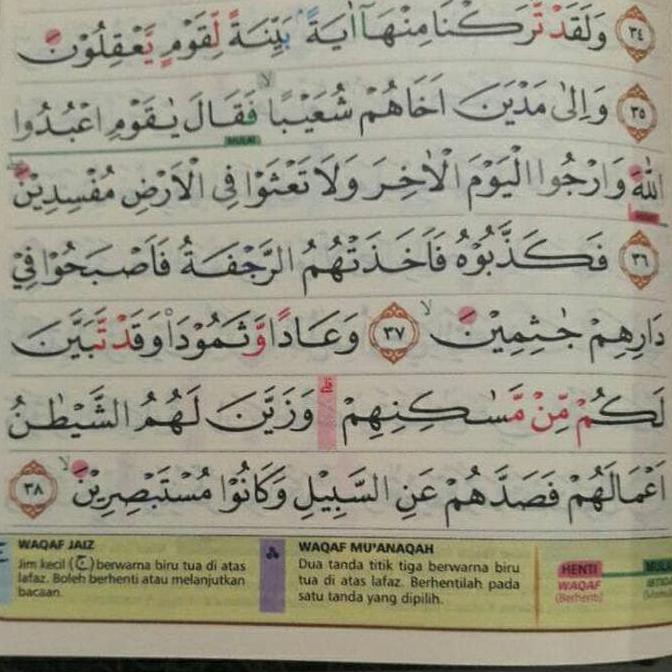 ٣٤ وَلَقَدْ تَّرَكْنَا مِنْهَآ اٰيَةً ۢ بَيِّنَةً لِّقَوْمٍ يَّعْقِلُوْنَ
٣٥ وَاِلٰى مَدْيَنَ اَخَاهُمْ شُعَيْبًاۙ فَقَالَ يٰقَوْمِ اعْبُدُوا
MULAI
اللّٰهَ وَارْجُوا الْيَوْمَ الْاٰخِرَ وَلَا تَعْثَوْا فِى الْاَرْضِ مُفْسِدِيْنَ
٣٦ فَكَذَّبُوْهُ فَاَخَذَتْهُمُ الرَّجْفَةُ فَاَصْبَحُوْا فِيْ
دَارِهِمْ جٰثِمِيْنَۙ ٣٧ وَعَادًا وَّثَمُوْدَا۟ وَقَدْ تَّبَيَّنَ
لَكُمْ مِّنْ مَّسٰكِنِهِمْۗ وَزَيَّنَ لَهُمُ الشَّيْطٰنُ
اَعْمَالَهُمْ فَصَدَّهُمْ عَنِ السَّبِيْلِ وَكَانُوْا مُسْتَبْصِرِيْنَۙ ٣٨
WAQAF JAIZ
Jim kecil (ج) berwarna biru tua di atas
lafaz. Boleh berhenti atau melanjutkan
bacaan.
WAQAF MU'ANAQAH
Dua tanda titik tiga berwarna biru
tua di atas lafaz. Berhentilah pada
satu tanda yang dipilih.
HENTI
WAQAF
(Berhenti)